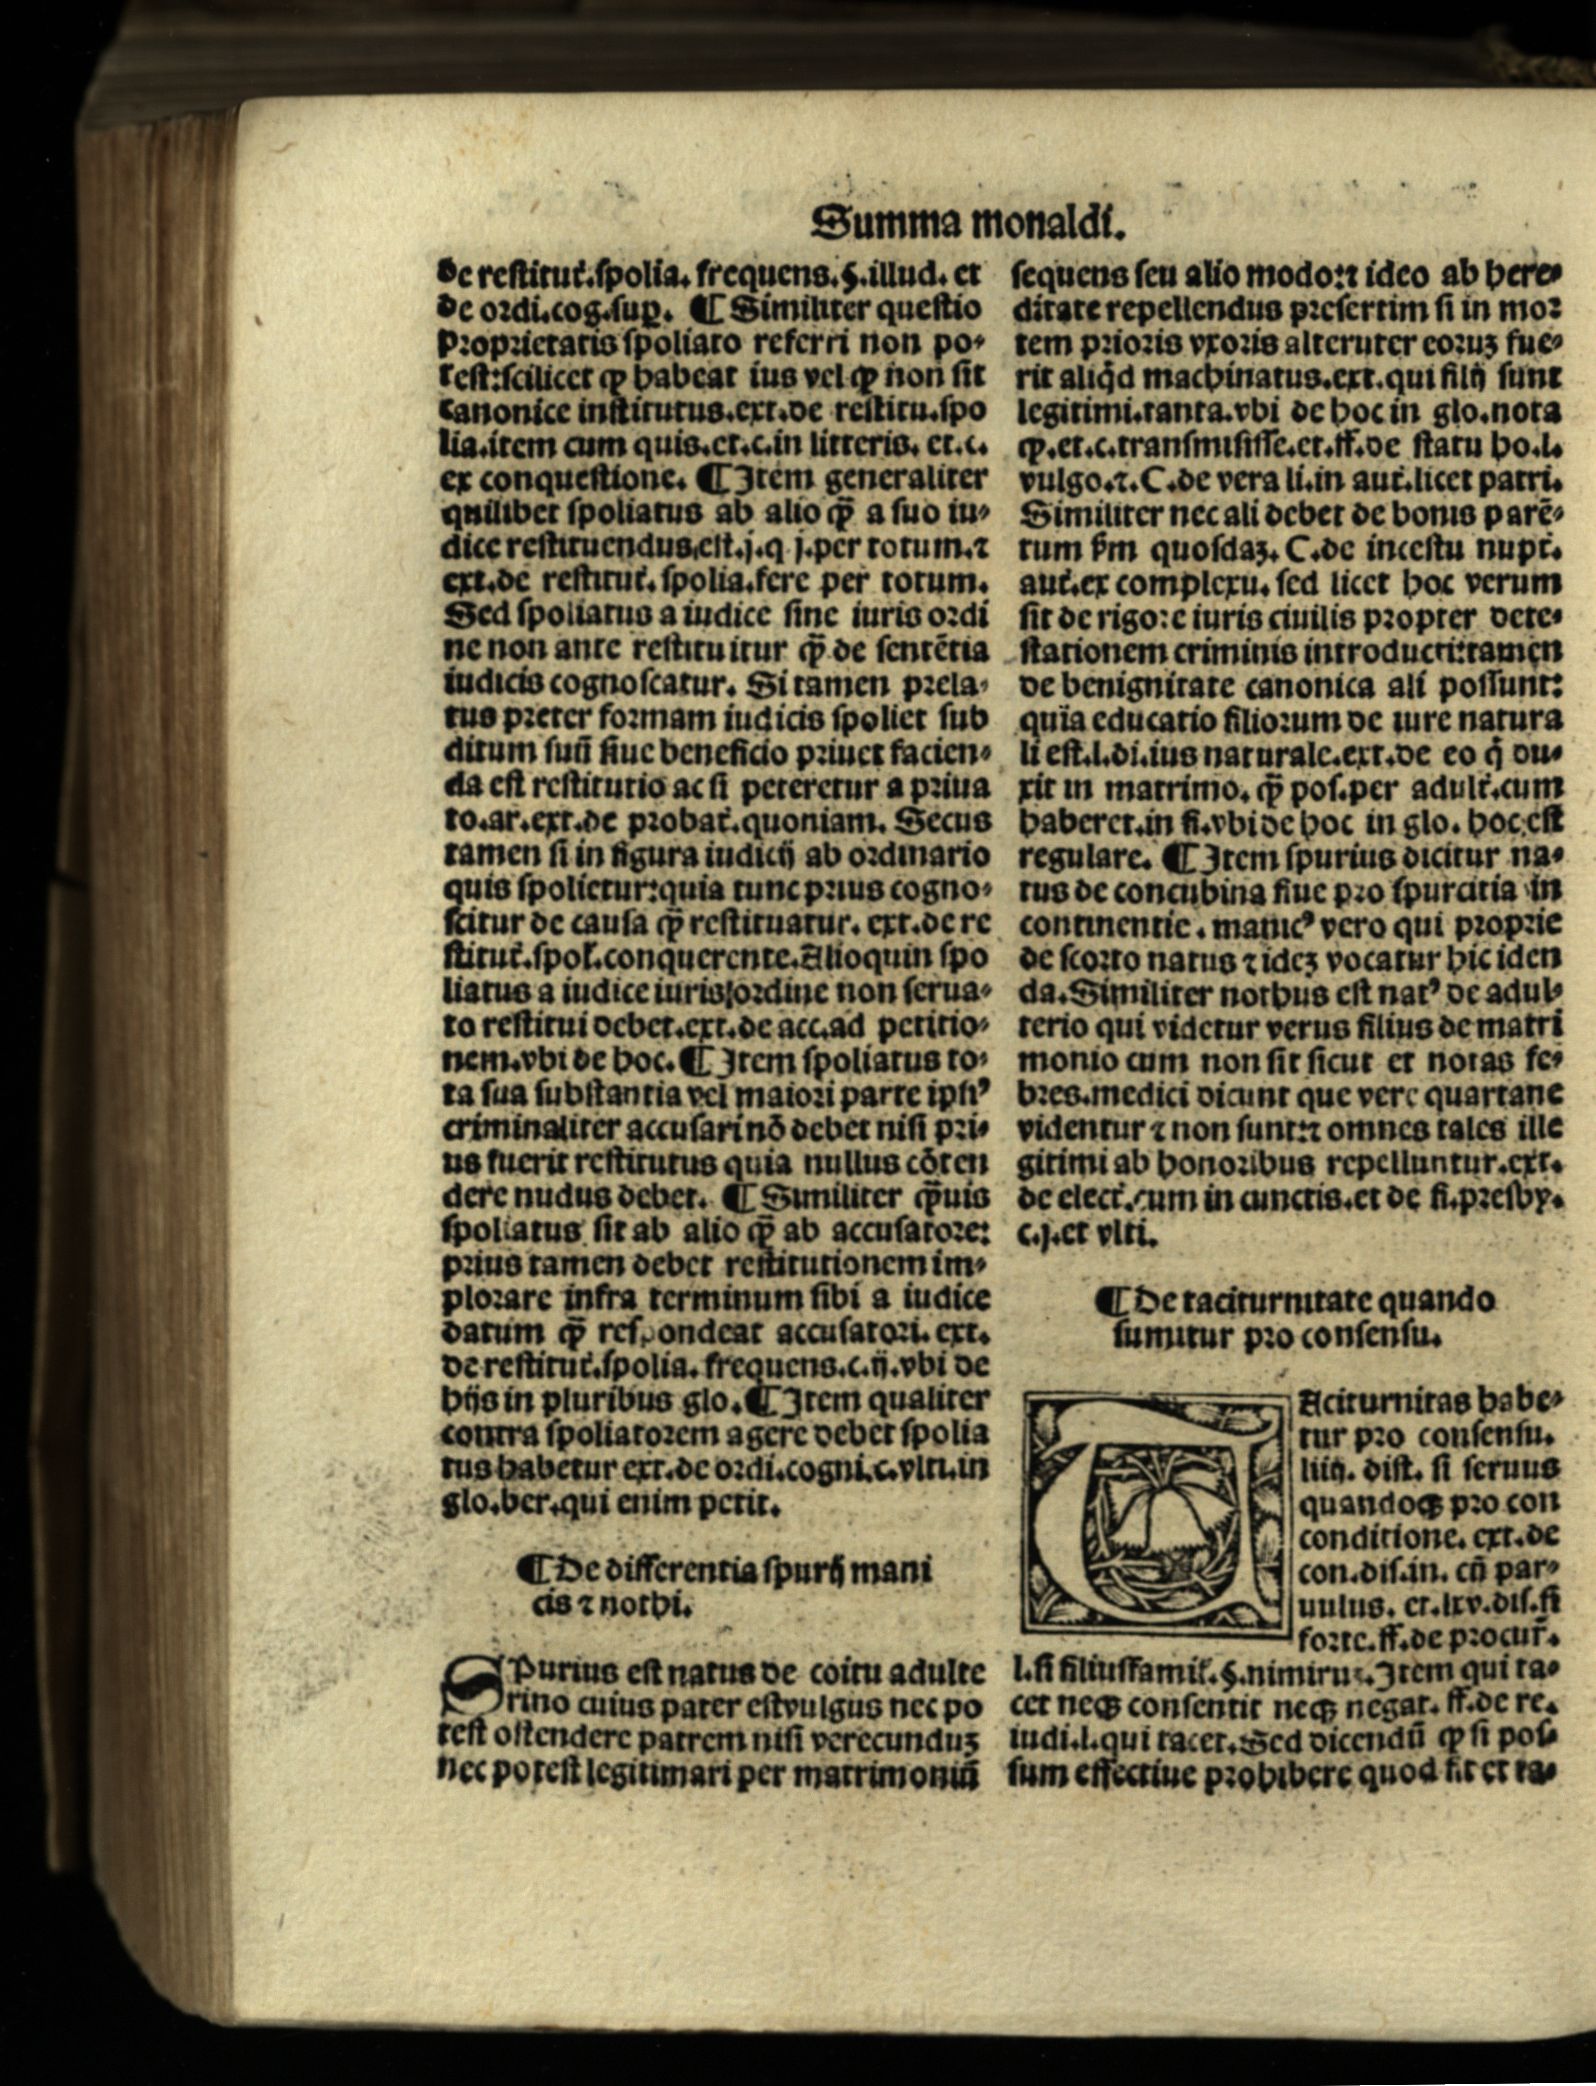 Summa monaldi.
de restitut̄.spolia. frequens.§.illud. et
de ordi.cog.sup̄. ¶ Similiter questio
proprietatis spoliato referri non po⸗
test:scilicet ꝙ habeat ius vel ꝙ non sit
canonice institutus.ext.de restitu.spo
lia.item cum quis.et.c.in litteris. et.c.
ex conquestione. ¶ Item generaliter
quilibet spoliatus ab alio ꝙ̄ a suo iu⸗
dice restituendus est.j.q j.per totum.⁊
ext.de restitut̄. spolia.fere per totum.
Sed spoliatus a iudice sine iuris ordi
ne non ante restituitur ꝙ̄ de sentētia
iudicis cognoscatur. Si tamen prela⸗
tus preter formam iudicis spoliet sub
ditum suū siue beneficio priuet facien⸗
da est restitutio ac si peteretur a priua
to.ar.ext.de probat̄.quoniam. Secus
tamen si in figura iudicij ab ordinario
quis spolietur:quia tunc prius cogno⸗
scitur de causa ꝙ̄ restituatur. ext.de re
stitut̄.spol̄.conquerente.Alioquin spo
liatus a iudice iuris ordine non serua⸗
to restitui debet.ext.de acc.ad petitio⸗
nem.vbi de hoc. ¶ Item spoliatus to⸗
ta sua substantia vel maiori parte ipsiꝰ
criminaliter accusari nō debet nisi pri⸗
us fuerit restitutus quia nullus cōten
dere nudus debet. ¶ Similiter ꝙ̄uis
spoliatus sit ab alio ꝙ̄ ab accusatore:
prius tamen debet restitutionem im⸗
plorare infra terminum sibi a iudice
datum ꝙ̄ respondeat accusatori. ext.
de restitut̄.spolia. frequens.c.ij.vbi de
hijs in pluribus glo. ¶ Item qualiter
contra spoliatorem agere debet spolia
tus habetur ext.de ordi.cogni.c.vlti.in
glo.ber.qui enim petit.
¶ De differentia spurij mani
cis ⁊ nothi.
SPurius est natus de coitu adulte
rino cuius pater est vulgus nec po
test ostendere patrem nisi verecunduꝫ
nec potest legitimari per matrimoniū
sequens seu alio modo:⁊ ideo ab here⸗
ditate repellendus presertim si in mor
tem prioris vxoris alteruter eoruꝫ fue⸗
rit aliq̇d machinatus.ext.qui filij sunt
legitimi.tanta.vbi de hoc in glo.nota
ꝙ.et.c.transmisisse.et.ff.de statu ho.l.
vulgo.⁊.C.de vera li.in aut̄.licet patri.
Similiter nec ali debet de bonis parē⸗
tum s̄m quosdaꝫ. C.de incestu nupt̄.
aut̄.ex complexu. sed licet hoc verum
sit de rigore iuris ciuilis propter dete⸗
stationem criminis introducti:tamen
de benignitate canonica ali possunt:
quia educatio filiorum de iure natura
li est.l.di.ius naturale.ext.de eo q̇ du⸗
xit in matrimo. ꝙ̄ pos.per adult̄.cum
haberet.in fi.vbi de hoc in glo. hoc est
regulare. ¶ Item spurius dicitur na⸗
tus de concubina siue pro spurcitia in
continentie. manicꝰ vero qui proprie
de scorto natus ⁊ ideꝫ vocatur hic iden
da.Similiter nothus est natꝰ de adul⸗
terio qui videtur verus filius de matri
monio cum non sit sicut et notas fe⸗
bres.medici dicunt que vere quartane
videntur ⁊ non sunt:⁊ omnes tales ille
gitimi ab honoribus repelluntur.ext.
de elect̄.cum in cunctis.et de fi.presby.
c.j.et vlti.
¶ De taciturnitate quando
sumitur pro consensu.
TAciturnitas habe⸗
tur pro consensu.
liiij. dist. si seruus
quandoqꝫ pro con
conditione. ext.de
con.dis.in. cū par⸗
uulus. et.lxv.dis.si
forte.ff.de procur̄.
l.si filiusfamil̄.§.nimiruꝫ.Item qui ta⸗
cet neqꝫ consentit neqꝫ negat. ff.de re.
iudi.l.qui tacet.Sed dicendū ꝙ si pos⸗
sum effectiue prohibere quod fit et ta⸗